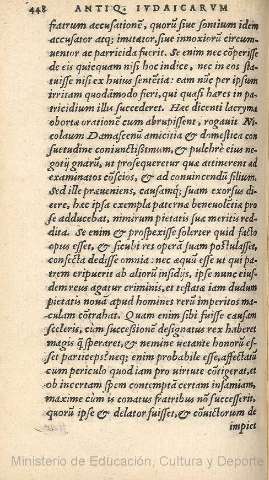 448 ANTIQ. IVDAICARVM
fratrum accusatione, quorū siue sontium idem
accusator atq; imitator, siue innoxiorū circum-
uentor ac parricida fuerit. Se enim nec cōperisse
de eis quicquam nisi hoc indice, nec in eos sta-
tuisse nisi ex huius sentētia: eam nūc per ipsum
irritam quodāmodo fieri, qui quasi hares in pa-
tricidium illa succederet. Hæc dicenti lacrymæ
obortæ orationē cum abrupissent, rogauit Ni-
colaum Damascenū amicitia & domestica con-
suetudine coniunctissimum, & pulchrè eius ne-
gotij gnarū, ut prosequeretur quæ attinerent ad
examinatos cōscios, & ad conuincendū filium.
Sed ille præueniens, causamq; suam exorsus di-
cere, hæc ipsa exempla paternæ beneuolētiæ pro
se adducebat, nimirum pietatis suæ meritis red-
dita. Se enim & prospexisse solerter quid facto
opus esset, & sicubi res operā suam postulasset,
confecta dedisse omnia: nec æquū esse ut qui pa-
trem eripuerit ab aliorū insidijs, ipse nunc eius-
dem reus agatur criminis, et testata iam dudum
pietatis nouā apud homines rerū imperitos ma-
culam cōtrahat. Quam enim sibi fuisse causam
sceleris, cùm successionē designatus rex haberet
magis q̃ speraret, & nemine uetante honorū es-
set particeps? neq; enim probabile esse, affectasse
cum periculo quod iam pro uirtute cōtigerat, et
ob incertam spem contemptā certam infamiam,
maxime cùm is conatus fratribus nō successerit,
quorū ipse & delator fuisset, & cōuictorum de
impiet
Ministerio de Educación, Cultura y Deporte